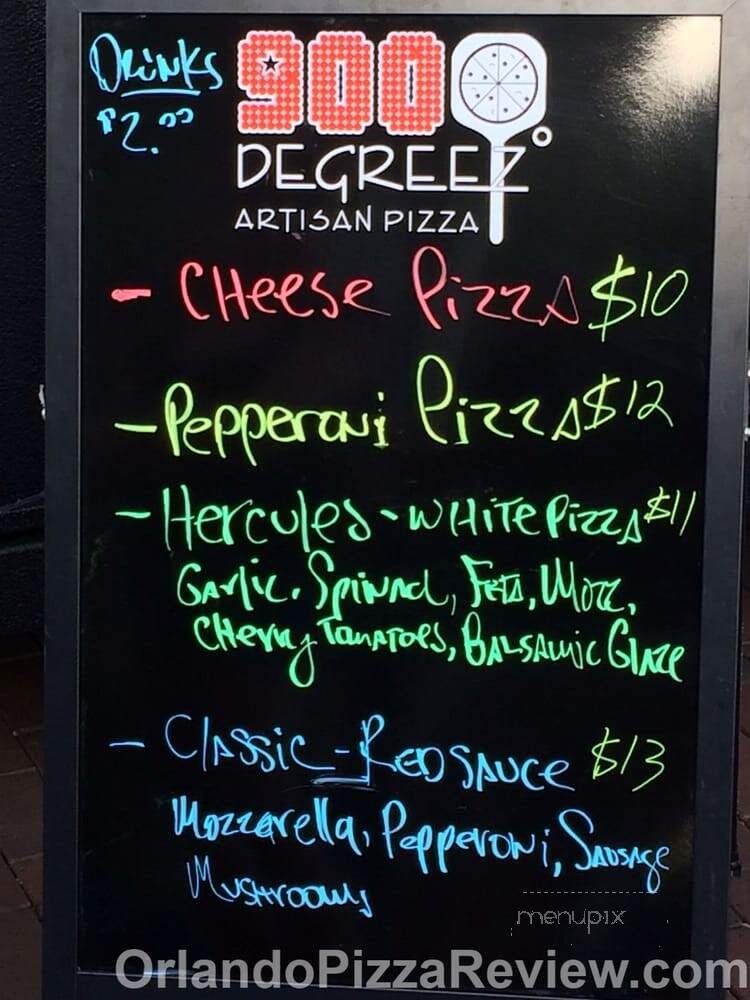 Drinks
$2.00
900
DEGREEZ°
ARTISAN PIZZA
- Cheese Pizza $10
- Pepperoni Pizza $12
- Hercules - White Pizza $11
Garlic. Spinach, Feta, Mozz,
Cherry Tomatoes, Balsamic Glaze
- Classic - Red Sauce $13
Mozzarella, Pepperoni, Sausage
Mushrooms
menupix
OrlandoPizzaReview.com